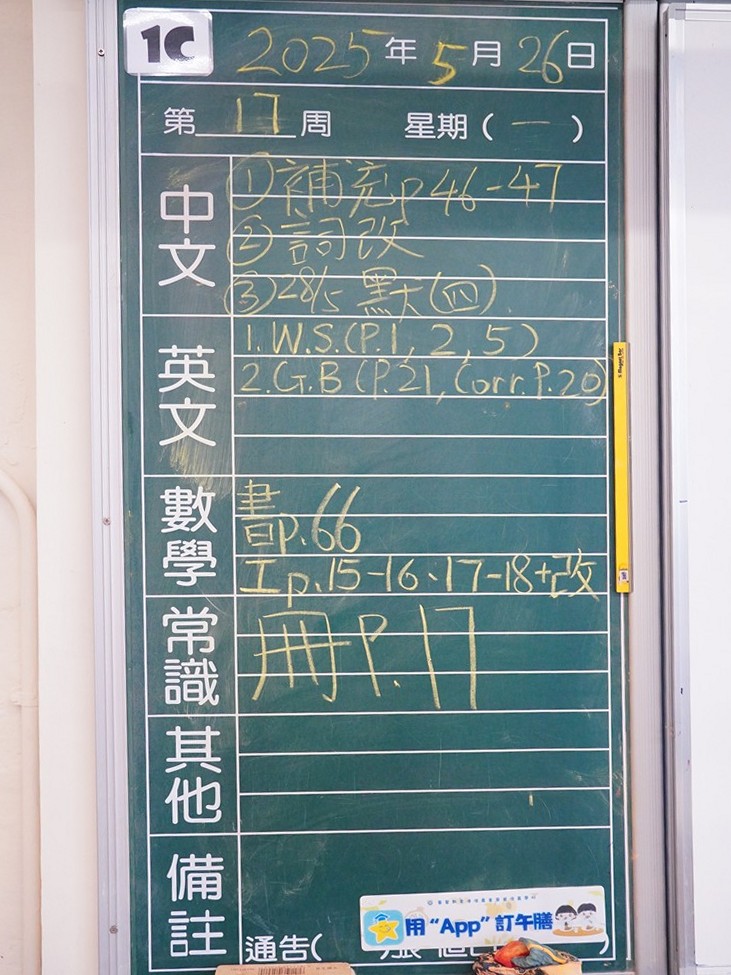 1C
2025年5月26日
第17周 星期(一)
中文
①補充p46-47
②詞改
③28/5 默(四)
英文
1.W.S.(P.1, 2, 5)
2.G.B(P.21, Corr.P.20)
數學
書p.66
工p.15-16、17-18+改
常識
冊P.17
其他
備註
用“App”訂午膳
通告(
)